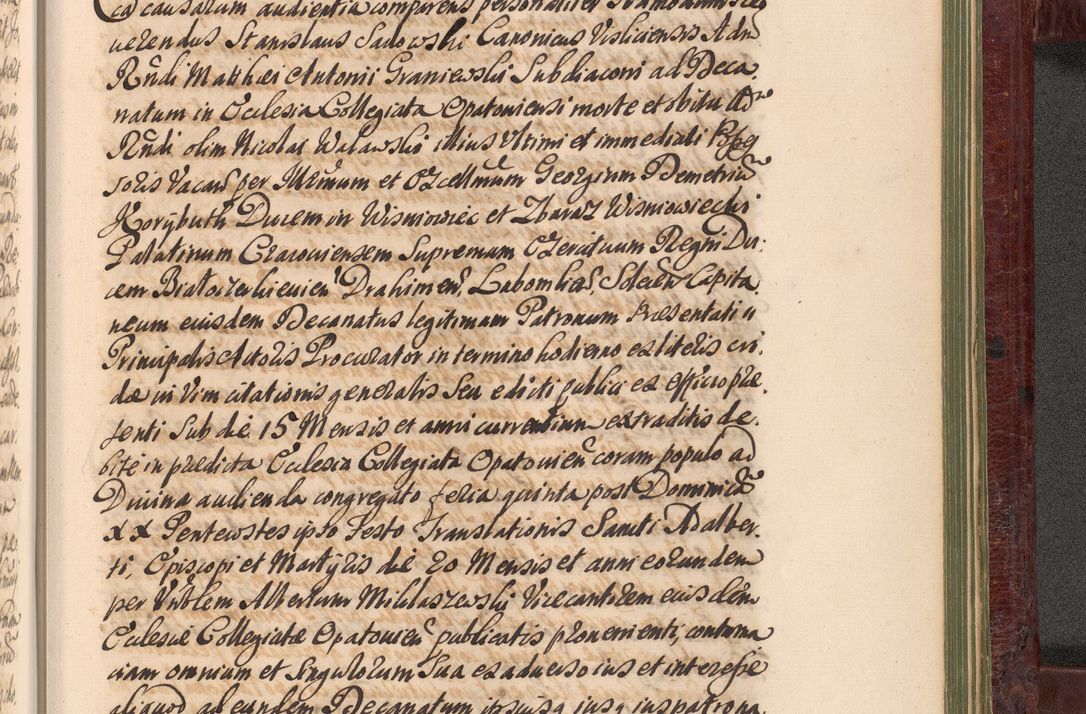 ca causarum audientia comparens personaliter
uerendus Stanislaus Sadowski Canonicus Visliciensis Adm
Rñdi Matthæi Antonii Graniewski Subdiaconi ad Deca
natum in Ecclesia Collegiata Opatouiensi morte et obitu Adm
Rñdi olim Nicolai Walawski illius Vltimi et immediati Posses
soris Vacañ per Illrmum et Excellmum Georgium Demetriũ
Korybuth Ducem in Wisniowiec et Zbaraz Wisniowiecki
Palatinum Cracouiensem Supremum Exercituum Regni Du:
cem Białocerkieuieñ Drahimeñ, Lubomlieñ, Soleceñ Capita
neum eiusdem Decanatus legitimum Patronum Præsentati ü
Principalis Actoris Procurator in termino hodierno ex literis cri:
dæ in Vim citationis generalis Seu edicti publici ex officio præ
senti Sub die 15 Mensis et anni currentium extraditis de:
bite in prædicta Ecclesia Collegiata Opatouieñ coram populo ad
Diuina audienda congregato feria quinta post Dominicã
XX Pentecostes ipso Festo Translationis Sancti Adalber
ti, Episcopi et Martyris die 20 Mensis et anni eorundem
per Vnblem Albertum Mikłaszewski Vicecantorem eiusdem
Ecclesiæ Collegiatæ Opatouieñ publicatis proueñienti, contuma
ciam omnium et Singulorum Sua ex aduerso ius et interesse
aliquod ad eundem Decanatum ipsiusq iusq iuspatrona